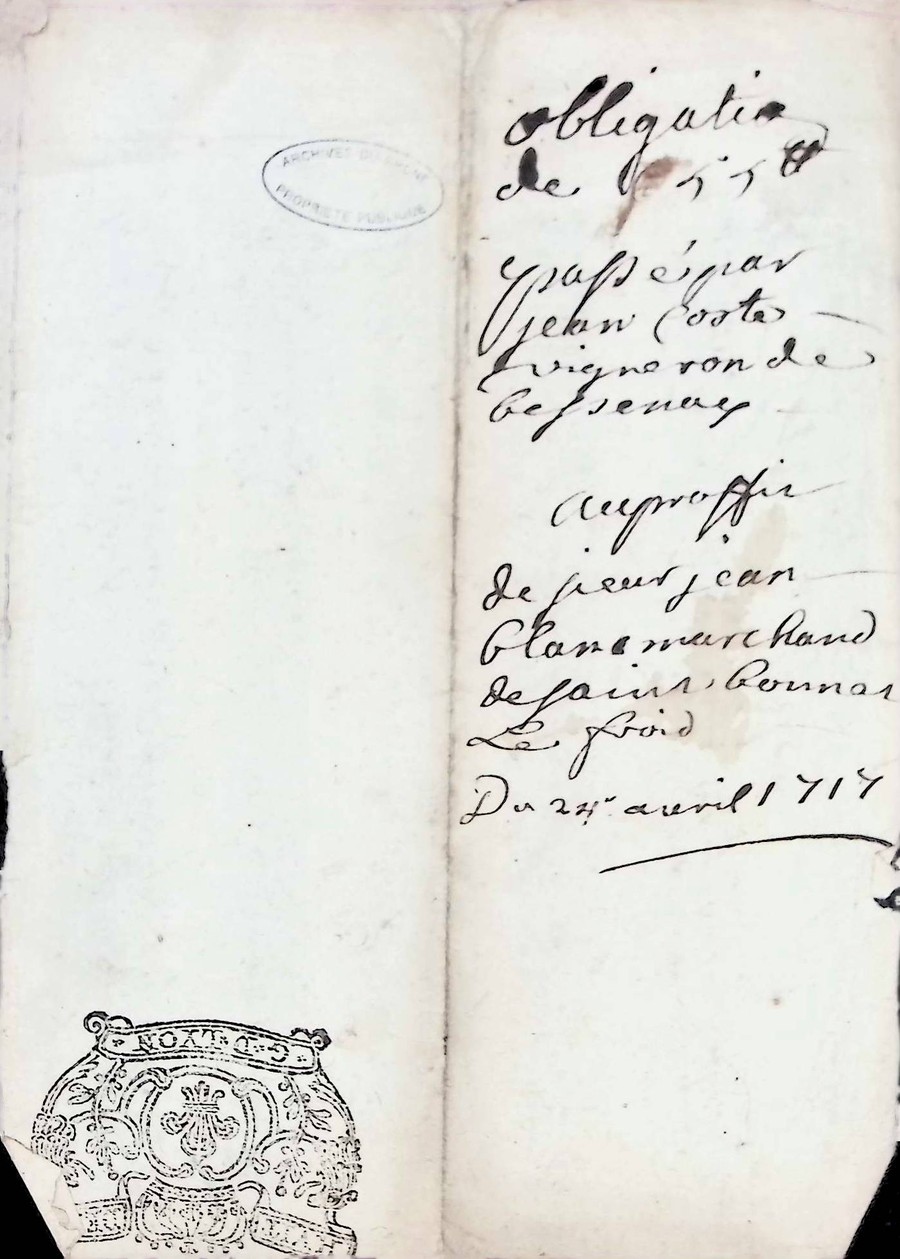 ARCHIVES DU
PROPRIETE PUBLIQUE
obligation
de 55 ₶
passé par
jean Coste
vigneron de
bessenay
au proffit
de sieur jean
blanc marchand
de saint bonnet
Le froid
Du 24e auril 1717
G·D·LYON